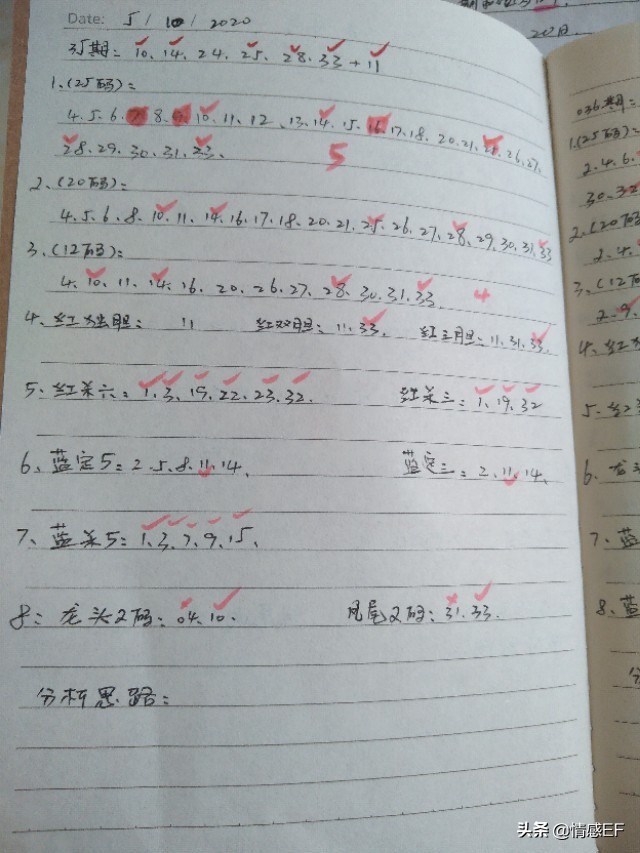 Date: 5 / 10 / 2020
35期: 10、14、24、25、28、33 + 11
1、(25码):
4、5、6、7、8、9、10、11、12、13、14、15、16、17、18、20、21、25、26、27、
28、29、30、31、33、
5
2、(20码):
4、5、6、8、10、11、14、16、17、18、20、21、25、26、27、28、29、30、31、33
3、(12码):
4、10、11、14、16、20、26、27、28、30、31、33、 4
4、红独胆: 11 红双胆: 11、33、 红三胆: 11、31、33、
5、红杀六: 1、3、19、22、23、32、 红杀三: 1、19、32
6、蓝定5: 2、5、8、11、14、 蓝定三: 2、11、14、
7、蓝杀5: 1、3、7、9、15、
8: 龙头2码: 04、10、 凤尾2码: 31、33、
分析思路:
036期:
1、(25码):
2、4、6、
30、32
2、(20码
2、4、
3、(12码
2、9、
4、红
5、红
6、
7、蓝
8、蓝
头条 @情感EF